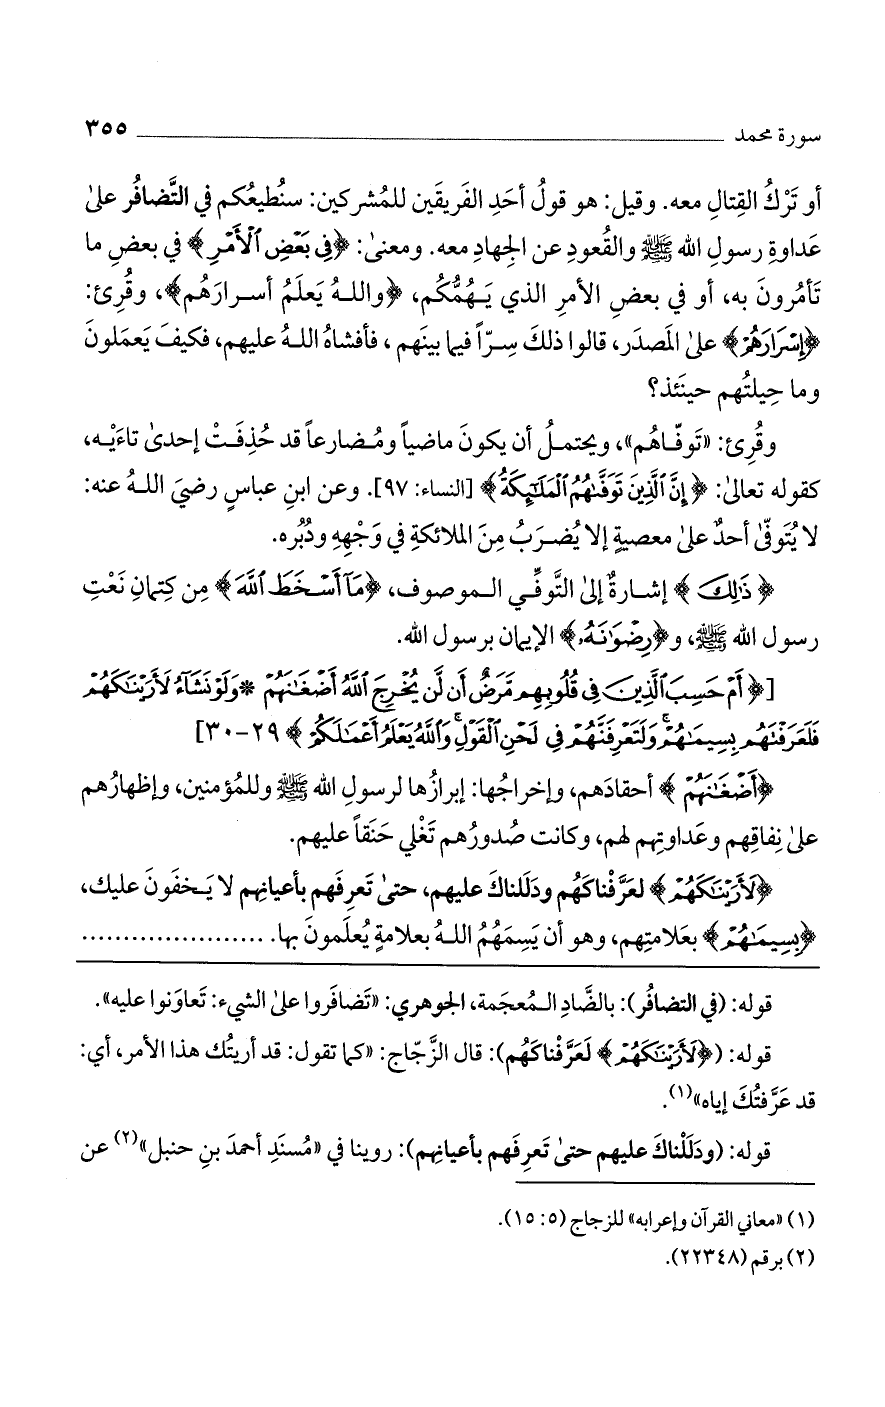 سورة محمد ٣٥٥
أو تَرْكُ القِتالِ معه. وقيل: هو قولُ أحَدِ الفَريقَين للمُشركين: سنُطيعُكم في التَّضافُر علىٰ
عَداوةِ رسولِ الله ﷺ والقُعودِ عن الجِهادِ معه. ومعنىٰ: ﴿فِى بَعْضِ ٱلْأَمْرِ﴾ في بعضِ ما
تَأمُرونَ به، أو في بعضِ الأمرِ الذي يَهُمُّكُم، ﴿واللهُ يَعلَمُ أسرارَهُم﴾، وقُرِئ:
﴿إِسْرَارَهُمْ﴾ علىٰ المَصدَر، قالوا ذلكَ سِرّاً فيما بينَهم ، فأفشاهُ اللهُ عليهم، فكيفَ يَعمَلونَ
وما حِيلتُهم حينَئذ؟
وقُرِئ: «تَوفّاهُم»، ويحتملُ أن يكونَ ماضياً ومُضارعاً قد حُذِفَتْ إحدىٰ تاءَيْه،
كقوله تعالىٰ: ﴿إِنَّ ٱلَّذِينَ تَوَفَّىٰهُمُ ٱلْمَلَٰٓئِكَةُ﴾ [النساء: ٩٧]. وعن ابنِ عباسٍ رضيَ اللهُ عنه:
لا يُتَوفّىٰ أحدٌ علىٰ معصيةٍ إلا يُضرَبُ مِنَ الملائكةِ في وَجْهِهِ ودُبُره.
﴿ذَٰلِكَ﴾ إشارةٌ إلىٰ التَّوفِّي الموصوف، ﴿مَآ أَسْخَطَ ٱللَّهَ﴾ مِن كِتمانِ نَعْتِ
رسول الله ﷺ، و﴿رِضْوَٰنَهُۥ﴾ الإيمان برسول الله.
[﴿أَمْ حَسِبَ ٱلَّذِينَ فِى قُلُوبِهِم مَّرَضٌ أَن لَّن يُخْرِجَ ٱللَّهُ أَضْغَٰنَهُمْ *وَلَوْ نَشَآءُ لَأَرَيْنَٰكَهُمْ
فَلَعَرَفْتَهُم بِسِيمَٰهُمْ ۚ وَلَتَعْرِفَنَّهُمْ فِى لَحْنِ ٱلْقَوْلِ ۚ وَٱللَّهُ يَعْلَمُ أَعْمَٰلَكُمْ﴾ ٢٩-٣٠]
﴿أَضْغَٰنَهُمْ﴾ أحقادَهم، وإخراجُها: إبرازُها لرسولِ الله ﷺ وللمُؤمنين، وإظهارُهم
علىٰ نِفاقِهم وعَداوتِهم لهم، وكانت صُدورُهم تَغْلي حَنَقاً عليهم.
﴿لَأَرَيْنَٰكَهُمْ﴾ لعرَّفْناكَهُم ودَلَلناكَ عليهم، حتىٰ تَعرِفَهم بأعيانِهم لا يَخفَونَ عليك،
﴿بِسِيمَٰهُمْ﴾ بعَلامتِهم، وهو أن يَسِمَهُمُ اللهُ بعلامةٍ يُعلَمونَ بها. ......................
قوله: (في التضافُر): بالضَّادِ المُعجَمة، الجوهري: «تَضافَروا علىٰ الشيء: تَعاوَنوا عليه».
قوله: (﴿لَأَرَيْنَٰكَهُمْ﴾ لَعَرَّفْناكَهُم): قال الزَّجّاج: «كما تقول: قد أريتُك هذا الأمر، أي:
قد عَرَّفتُكَ إياه»(١).
قوله: (ودَلَلْناكَ عليهم حتىٰ تَعرِفَهم بأعيانِهم): روينا في «مُسنَدِ أحمدَ بنِ حنبل»(٢) عن
(١) «معاني القرآن وإعرابه» للزجاج (٥: ١٥).
(٢) برقم (٢٢٣٤٨).